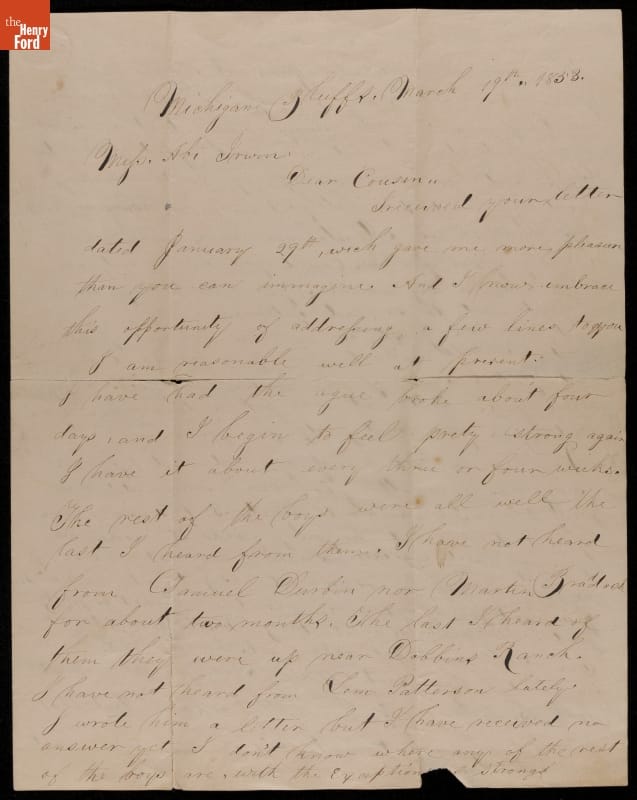 the
Henry
Ford
Michigan Bluffs. March 19th. 1853.
Miss. Abi Irwin
Dear Cousin
I received your letter
dated January 29th, wich gave me more pleasure
than you can immagine. And I now embrace
this opportunity of addressing a few lines to you
I am reasonable well at present.
I have had the ague broke about four
days, and I begin to feel prety strong again
I have it about every three or four weeks.
The rest of the boys were all well the
last I heard from them. I have not heard
from Samuel Durbin nor Martin
for about two months. The last I heard of
them they were up near Dobbins Ranch.
I have not heard from Lem Patterson lately.
I wrote him a letter but I have received no
answer yet I don't know where any of the rest
of the boys are, with the Exception Strongs